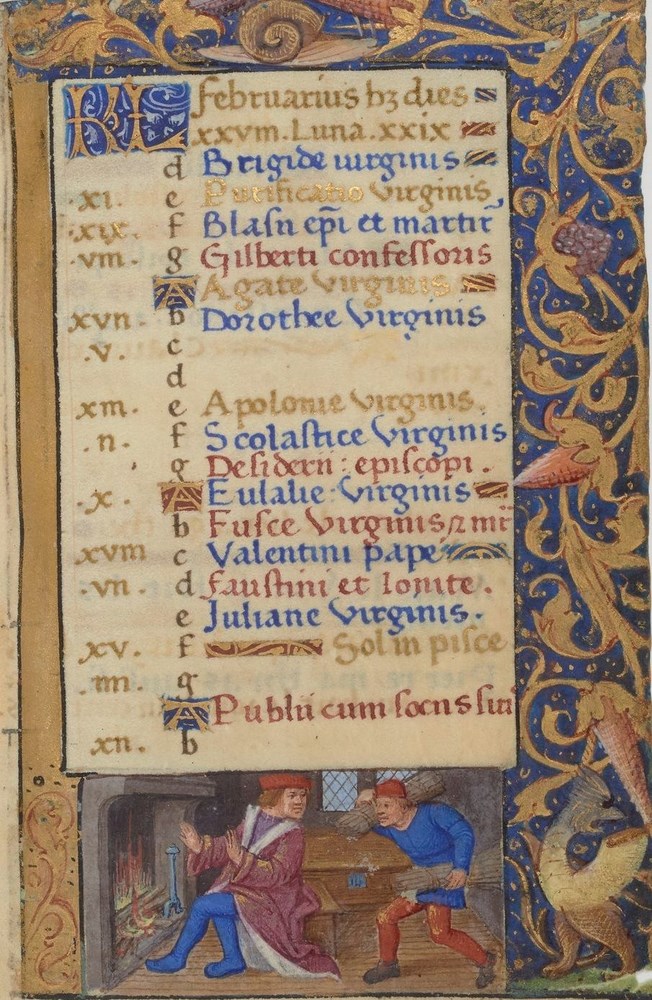 KL februarius hꝫ dies
xxvııı. Luna. xxix
d Brigide uirginis
.xi. e Purificatio virginis
.xix. f Blasii ep̄i et martir̄
.vııı. g Gilberti confessoris
A Agate virginis
.xvıı. b Dorothee virginis
.v. c
d
.xııı. e Apolonie virginis.
.ıı. f Scolastice virginis
g Desiderii: episcopi.
.x. A Eulalie: virginis
b Fusce virginis ⁊ mir̄
xvııı c Valentini pape
.vıı. d Faustini et Ionite.
e Juliane virginis.
xv. f Sol in pisce
.ıııı. g
A Publii cum sociis sui
xıı. b